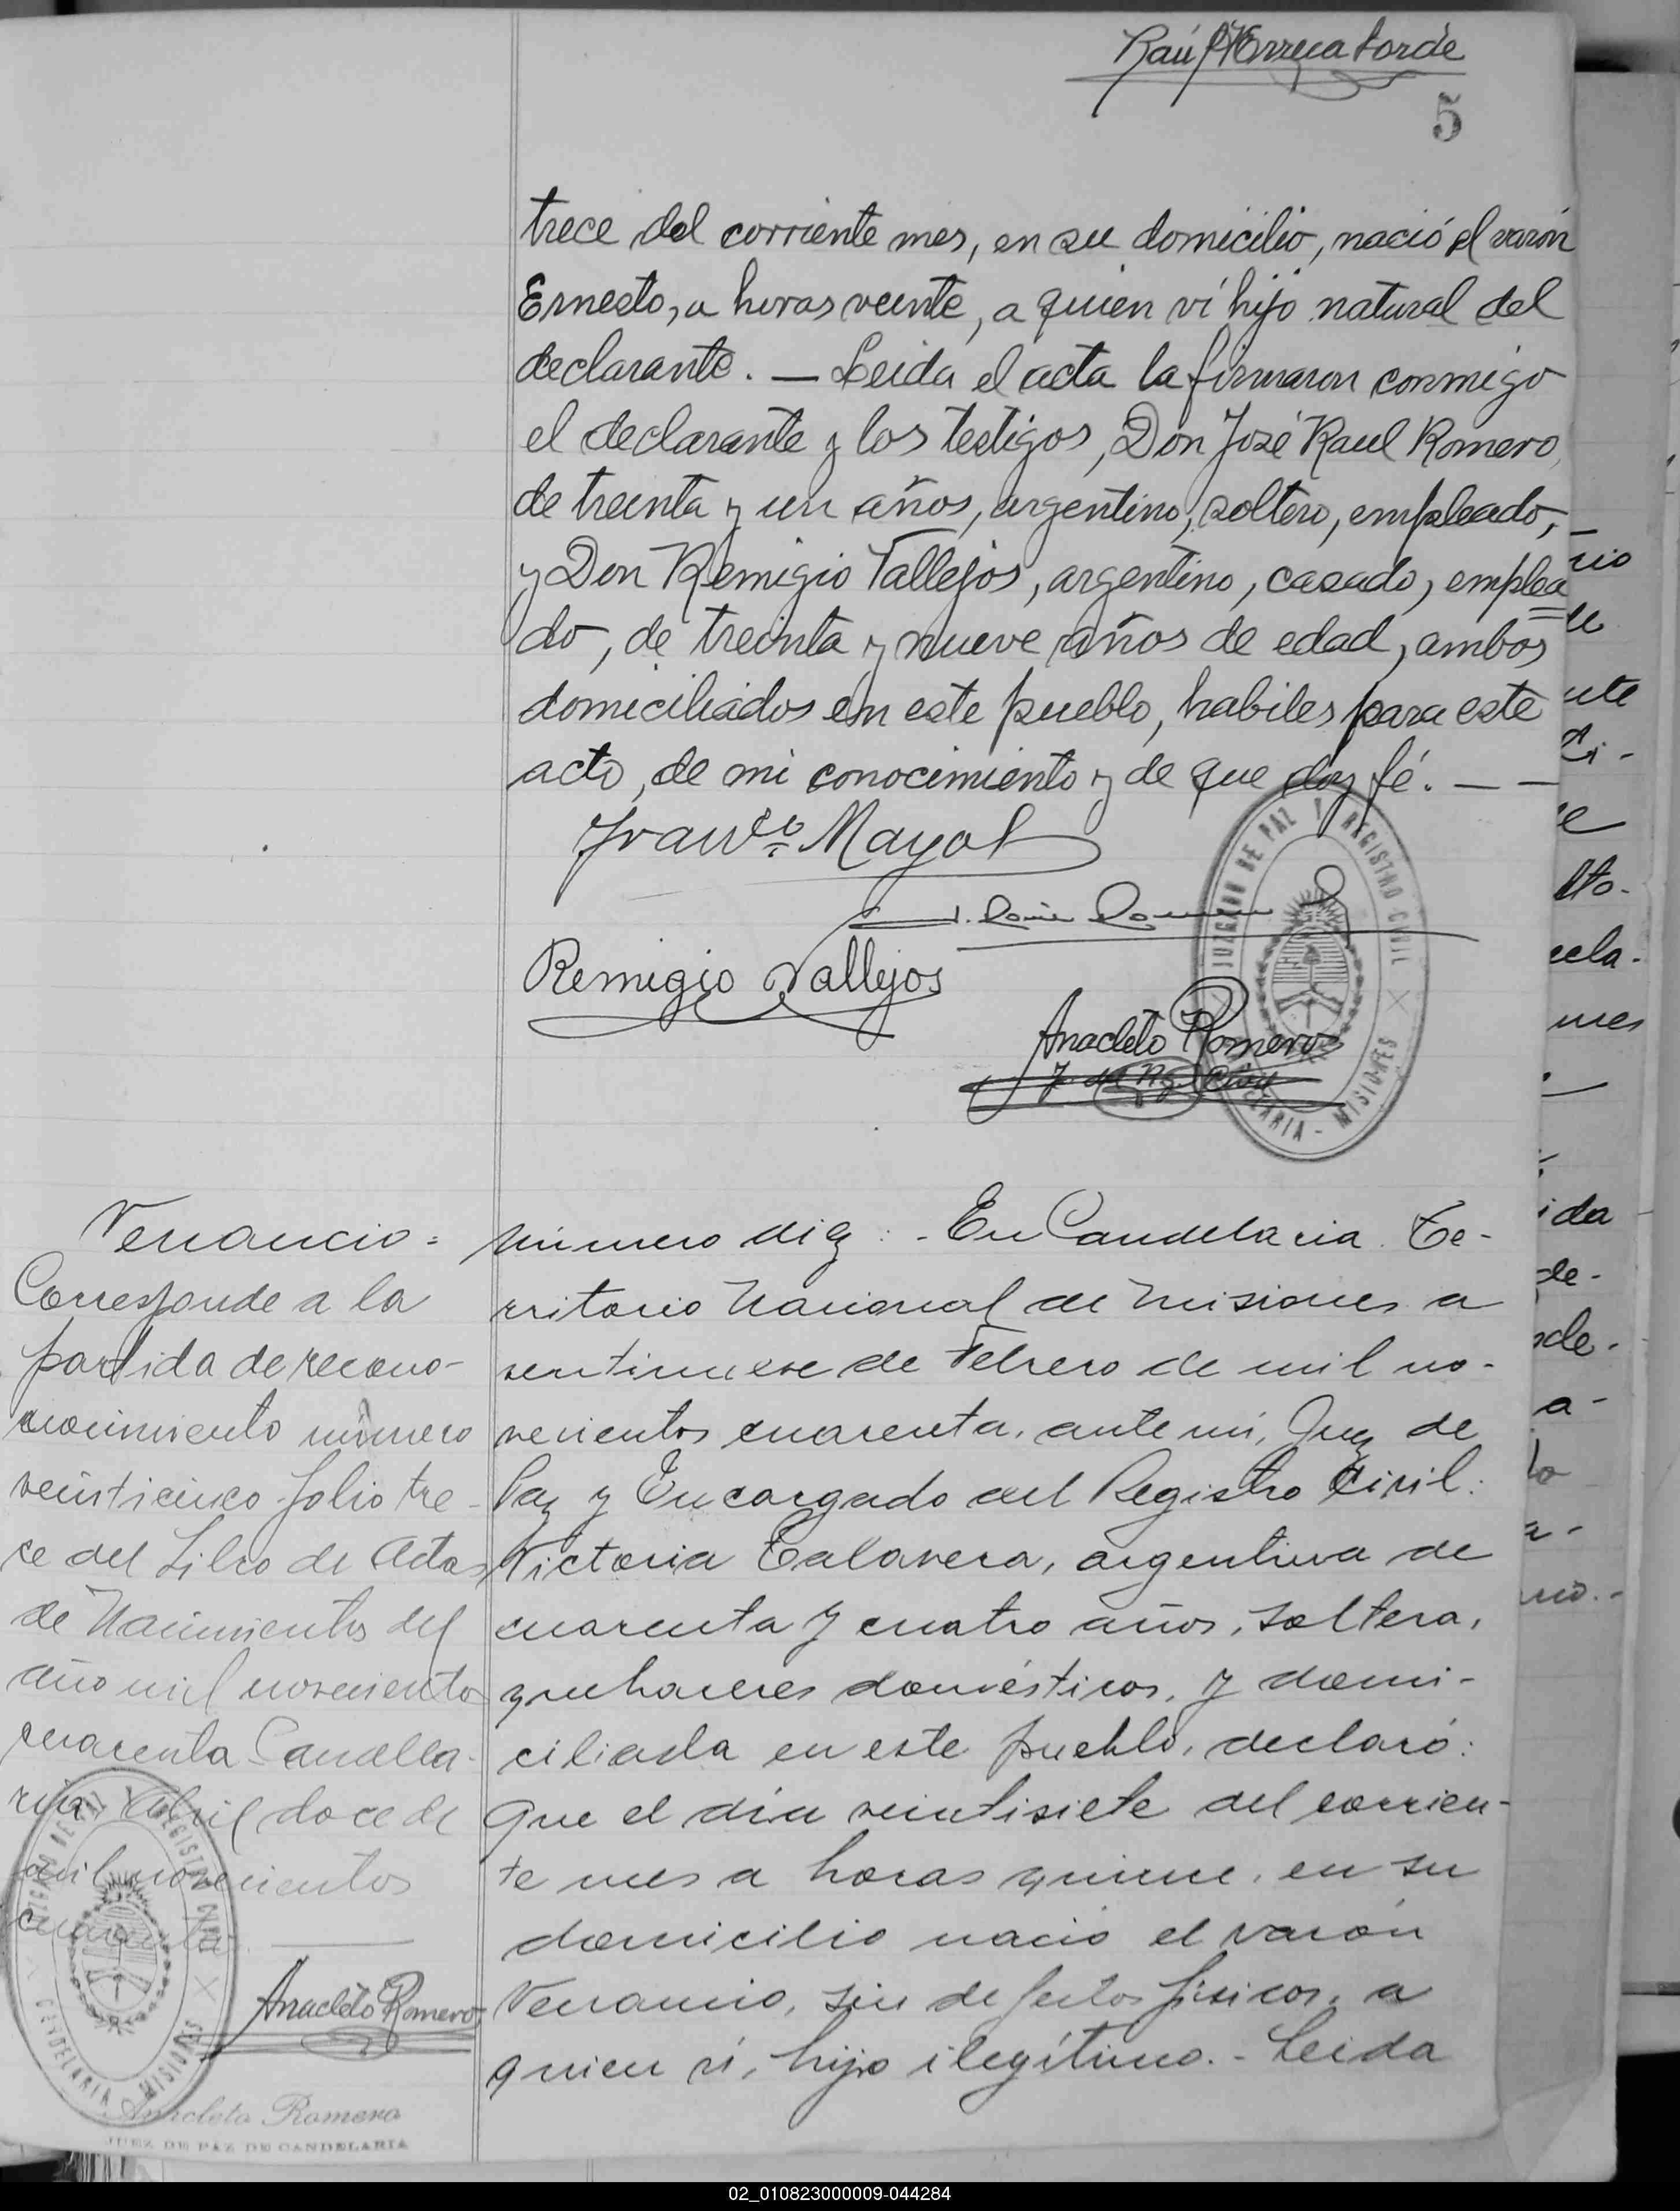 Raúl
5
trece del corriente mes, en su domicilio, nació el varón
Ernesto, a horas veinte, a quien ví hijo natural del
declarante. — Leida el acta la firmaron conmigo
el declarante y los testigos, Don José Raul Romero,
de treinta y un años, argentino, soltero, empleado,
y Don Remigio Vallejos, argentino, casado, emplea
do, de treinta y nueve años de edad, ambos
domiciliados en este pueblo, habiles para este
acto, de mi conocimiento y de que doy fé. — —
Franco. Mayol
JUZGADO DE PAZ Y REGISTRO CIVIL
Remigio Vallejos
Anacleto Romero
CANDELARIA - MISIONES
Venancio =
Corresponde a la
partida de recono-
nocimiento número
veinticinco folio tre-
ce del Libro de Actas
de Nacimientos del
año mil novecientos
cuarenta Candela-
ria, Abril doce de
mil novecientos
cuarenta.
Anacleto Romero
CANDELARIA - MISIONES
Anacleto Romero
JUEZ DE PAZ DE CANDELARIA
Número diez: - En Candelaria. Te-
rritorio Nacional de Misiones a
ventinueve de Febrero de mil no-
vecientos cuarenta, ante mi, Juez de
Paz y Encargado del Registro Civil:
Victoria Talavera, argentina de
cuarenta y cuatro años, soltera,
quehaceres domésticos, y domi-
ciliada en este pueblo, declaró:
Que el día veintisiete del corrien-
te mes a horas quince, en su
domicilio nació el varón
Venancio, sin defectos físicos, a
quien ví, hijo ilegítimo. - Leida
02_010823000009-044284